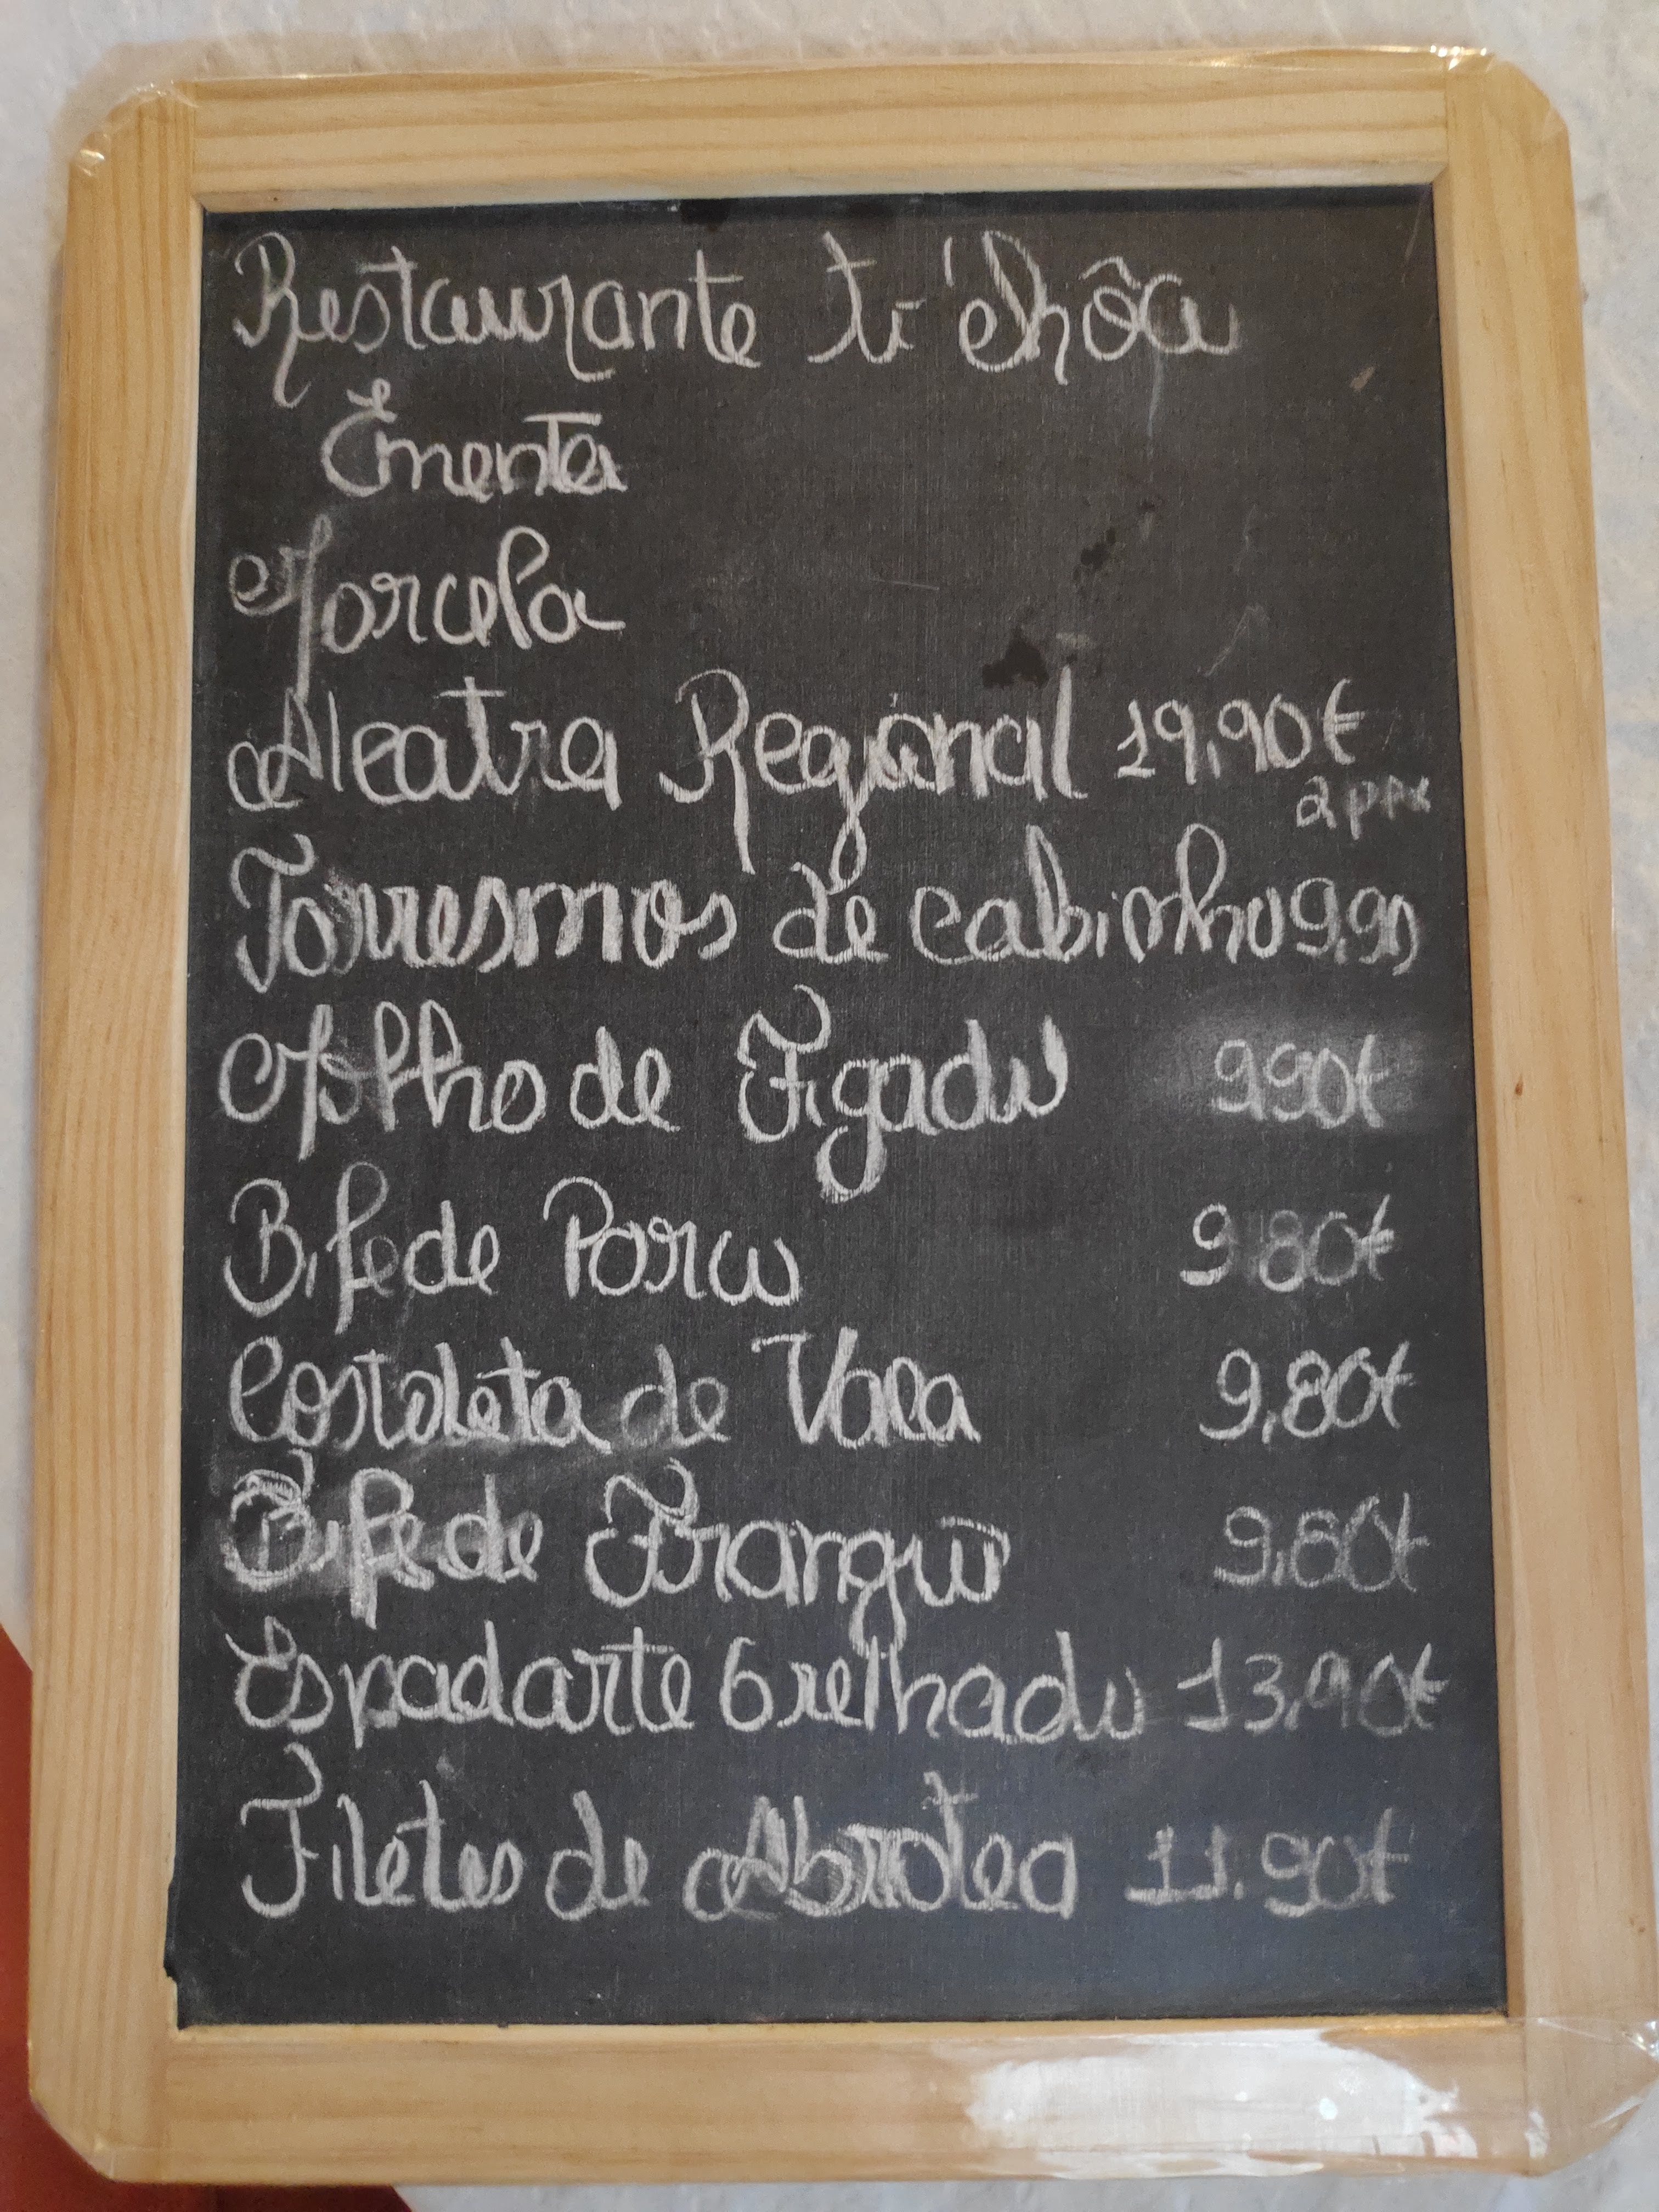 Restaurante ti'Chôa
Ementa
Morcela
Alcatra Regional 19,90€
2 pax
Torresmos de cabinho 9,90
Molho de Figado 9.90€
Bife de Porco 9.80€
Costoleta de Vaca 9,80€
Bife de Frango 9,80€
Espadarte Grelhado 13,90€
Filetes de Abrotea 11.90€